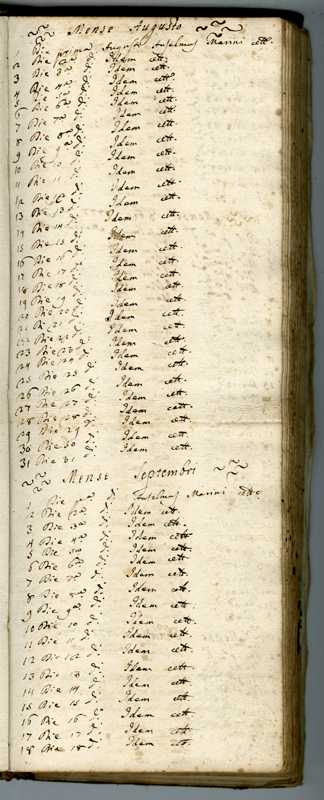 Mense Augusto
1 Die prima Augusti Anselmus Marini cett.
2 Die 2a di Idem cett.
3 Die 3a di Idem cett.
4 Die 4a di Idem cett.
5 Die 5a di Idem cett.
6 Die 6a di Idem cett.
7 Die 7a di Idem cett.
8 Die 8a di Idem cett.
9 Die 9a di Idem cett.
10 Die 10 di Idem cett.
11 Die 11 di Idem cett.
12 Die 12 di Idem cett.
13 Die 13 di Idem cett.
14 Die 14 di Idem cett.
15 Die 15 di Idem cett.
16 Die 16 di Idem cett.
17 Die 17 di Idem cett.
18 Die 18 di Idem cett.
19 Die 19 di Idem cett.
20 Die 20 di Idem cett.
21 Die 21 di Idem cett.
22 Die 22 di Idem cett.
23 Die 23 di Idem cett.
24 Die 24 di Idem cett.
25 Die 25 di Idem cett.
26 Die 26 di Idem cett.
27 Die 27 di Idem cett.
28 Die 28 di Idem cett.
29 Die 29 di Idem cett.
30 Die 30 di Idem cett.
31 Die 31 di Idem cett.
Mense Septembri
1 Die pa di Anselmus Marini cett.
2 Die 2a di Idem cett.
3 Die 3a di Idem cett.
4 Die 4a di Idem cett.
5 Die 5a di Idem cett.
6 Die 6a di Idem cett.
7 Die 7a di Idem cett.
8 Die 8a di Idem cett.
9 Die 9a di Idem cett.
10 Die 10 di Idem cett.
11 Die 11 di Idem cett.
12 Die 12 di Idem cett.
13 Die 13 di Idem cett.
14 Die 14 di Idem cett.
15 Die 15 di Idem cett.
16 Die 16 di Idem cett.
17 Die 17 di Idem cett.
18 Die 18 di Idem cett.